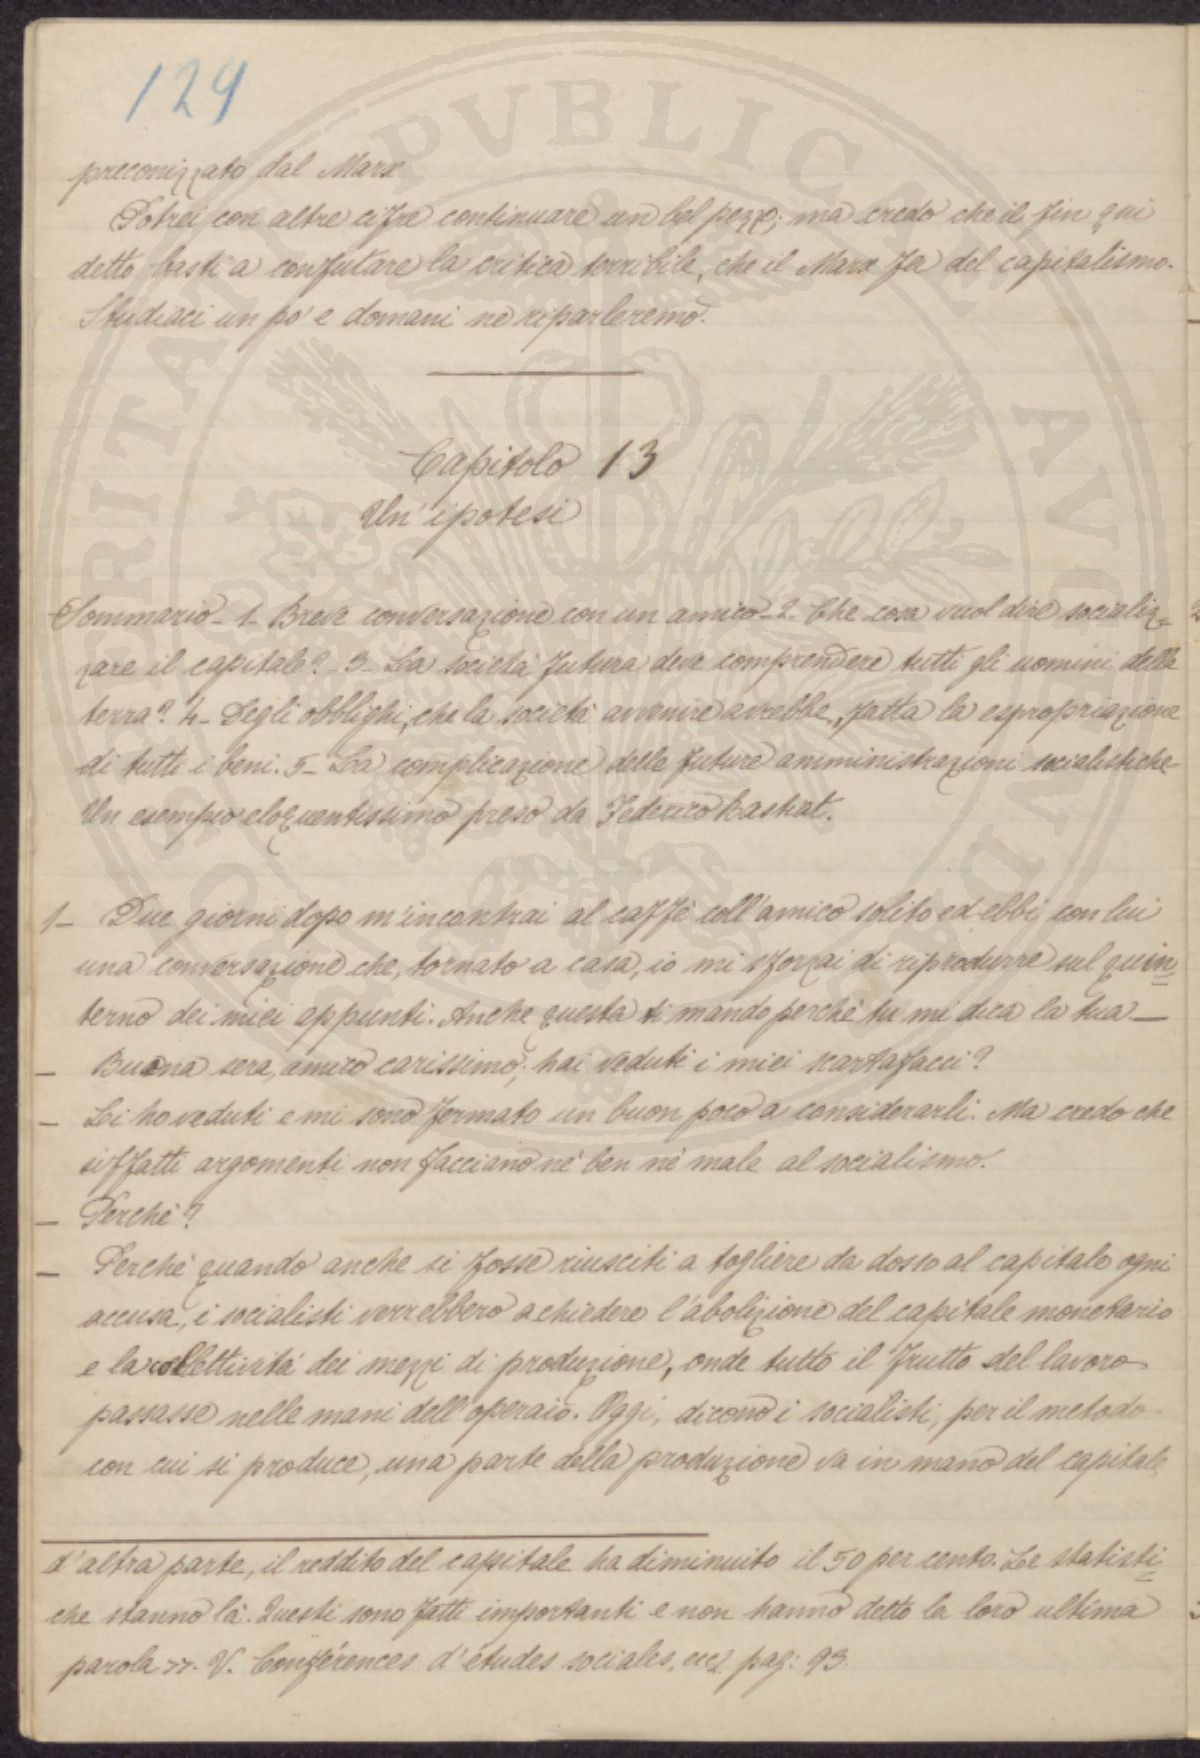 124
preconizzato dal Marx
Potrei con altre cifre continuare un bel pezzo; ma credo che il fin qui
detto basti a confutare la critica terribile, che il Marx fa del capitalismo.
Studiaci un po' e domani ne riparleremo.
Capitolo 13
Un' ipotesi
Sommario - 1 - Breve conversazione con un amico - 2 - Che cosa vuol dire socializ=
zare il capitale? - 3 - La società futura deve comprendere tutti gli uomini della
terra? 4 - Degli obblighi, che la società avvenire avrebbe, fatta la espropriazione
di tutti i beni. 5 - La complicazione delle future amministrazioni socialistiche -
Un esempio eloquentissimo preso da Federico Bastiat.
1 - Due giorni dopo m'incontrai al caffè coll'amico solito ed ebbi con lui
una conversazione che, tornato a casa, io mi sforzai di riprodurre sul quin=
terno dei miei appunti. Anche questa ti mando perchè tu mi dica la tua —
— Buona sera, amico carissimo; hai veduti i miei scartafacci?
— Li ho veduti e mi sono fermato un buon poco a considerarli. Ma credo che
siffatti argomenti non facciano nè ben nè male al socialismo.
— Perchè?
— Perchè quando anche si fosse riusciti a togliere da dosso al capitale ogni
accusa, i socialisti verrebbero a chiedere l'abolizione del capitale monetario
e la collettività dei mezzi di produzione, onde tutto il frutto del lavoro
passasse nelle mani dell'operaio. Oggi, dicono i socialisti, per il metodo
con cui si produce, una parte della produzione va in mano del capitale
d'altra parte, il reddito del capitale ha diminuito il 50 per cento. Le statisti=
che stanno là. Questi sono fatti importanti e non hanno detto la loro ultima
parola >>. V. Conférences d'études sociales, ecc. pag: 93.
PVBLICAE
AVCTORITATE